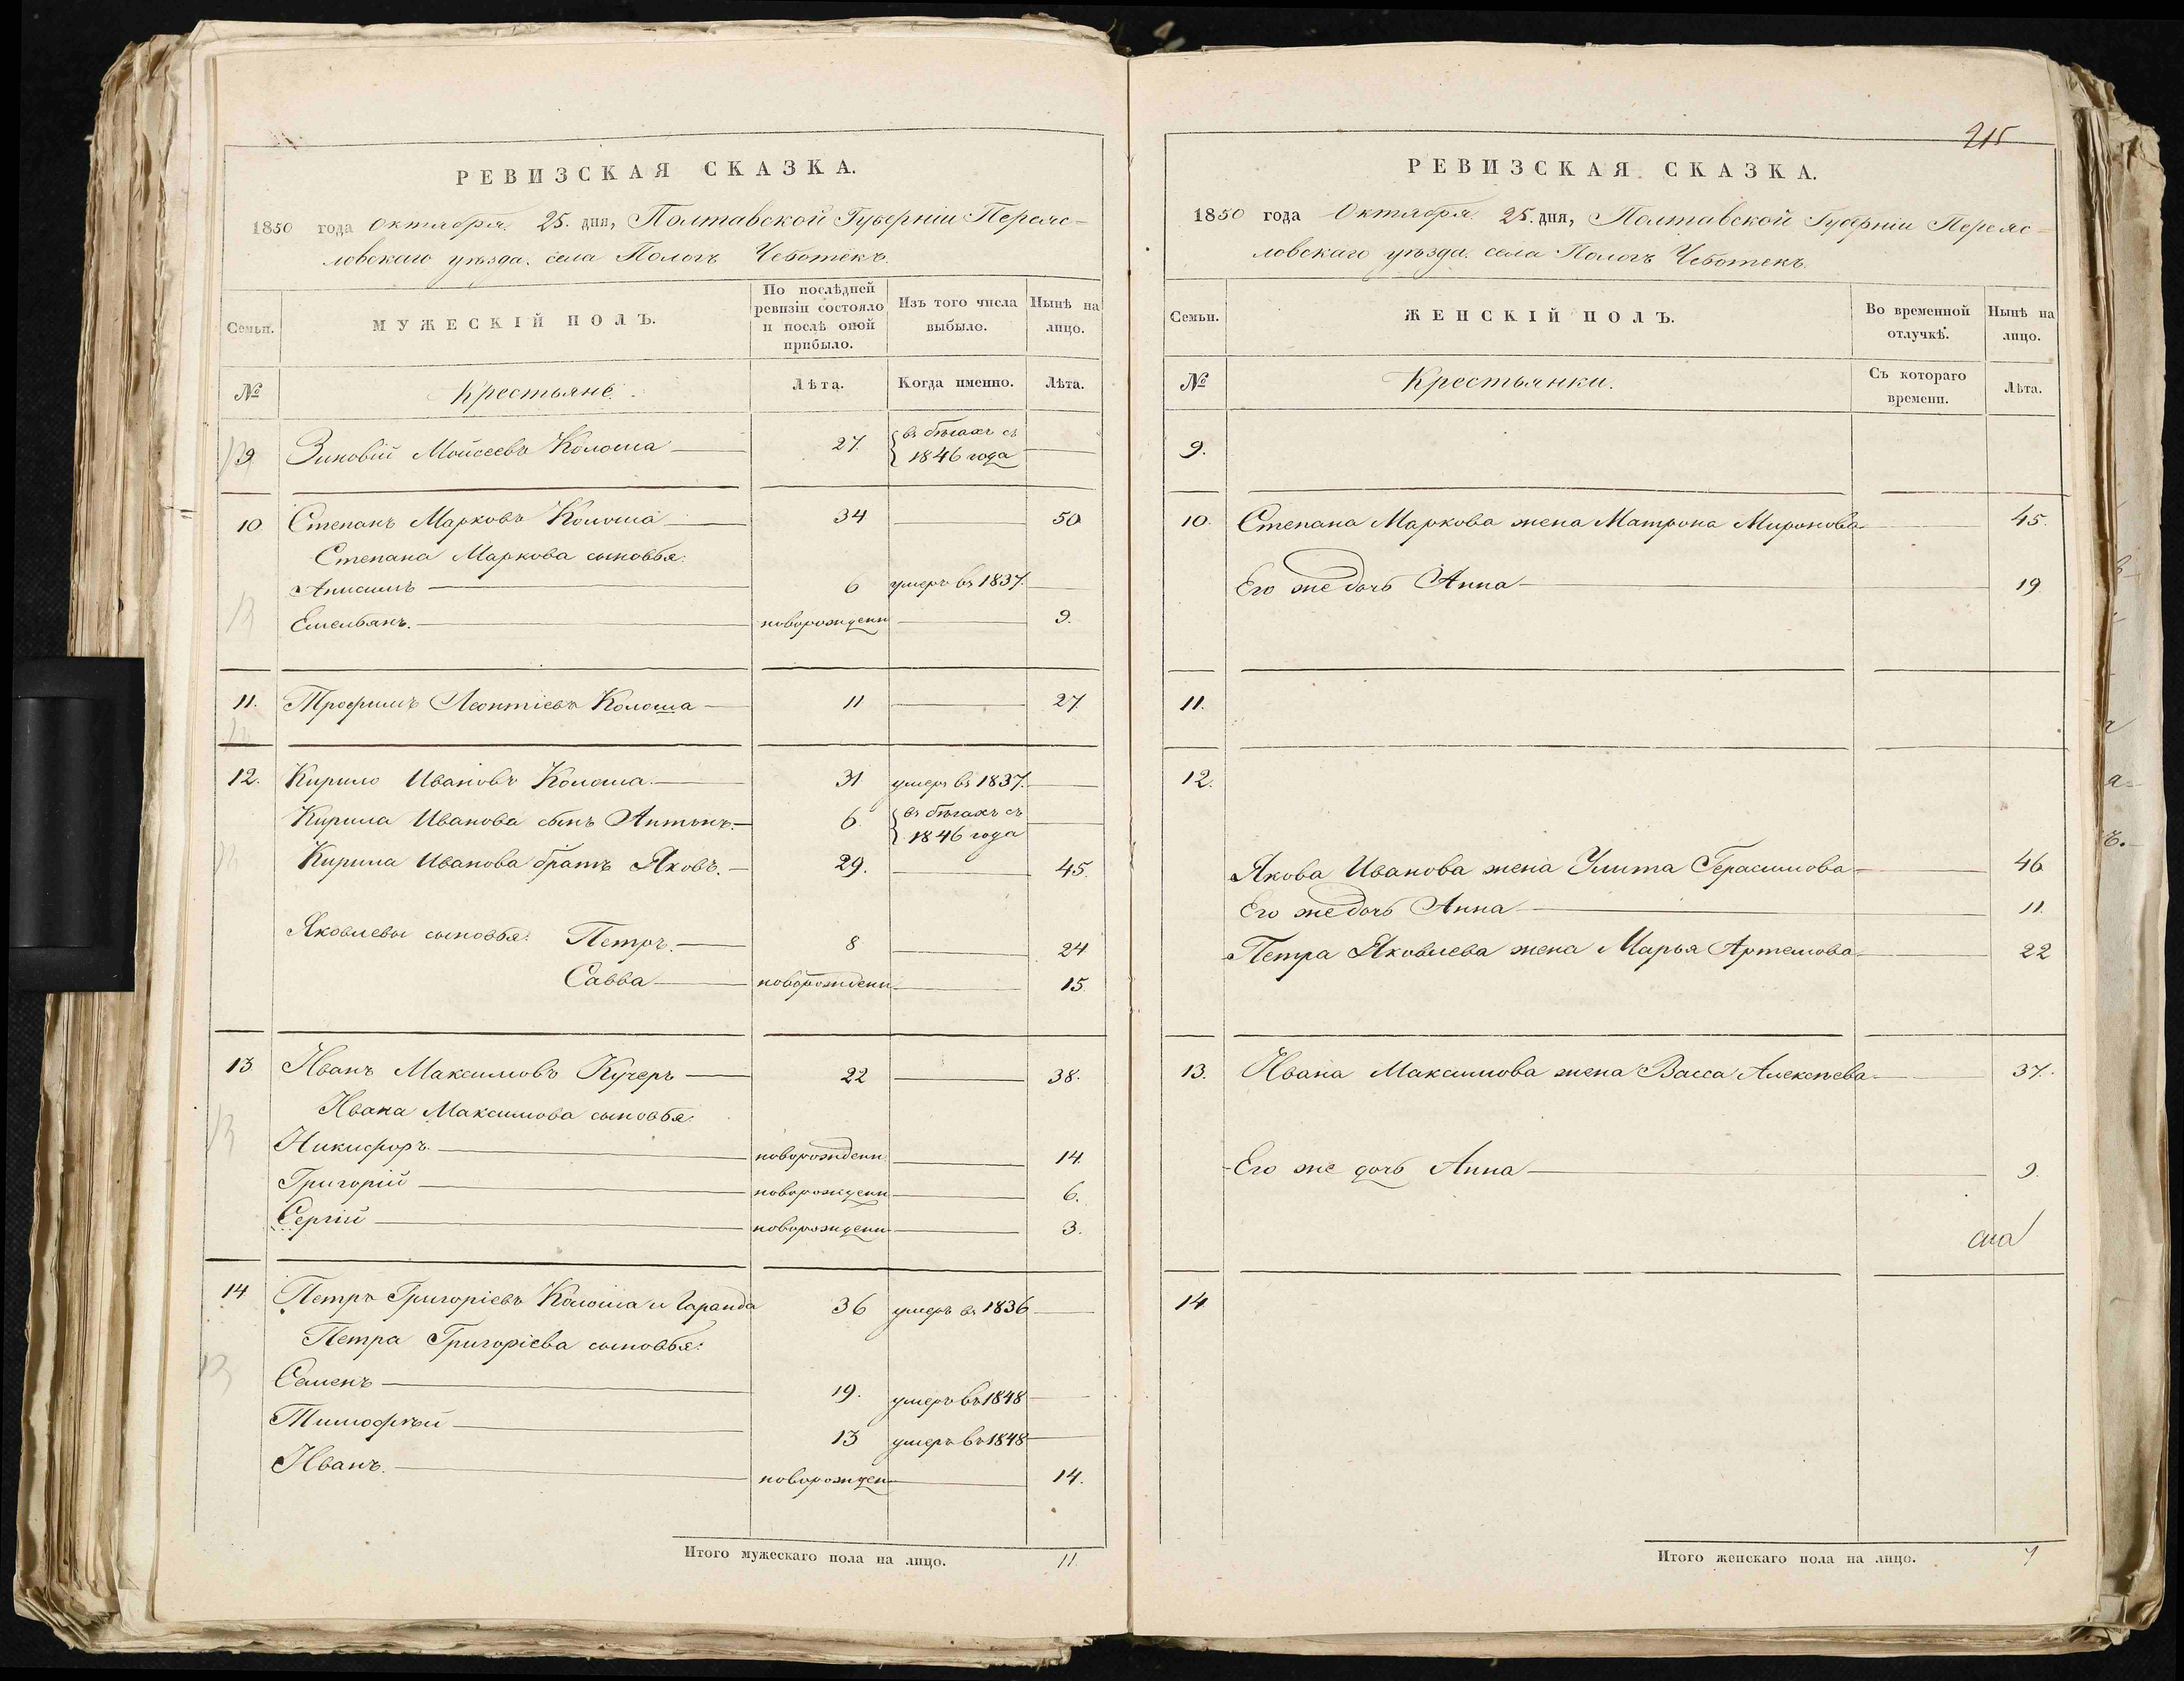 РЕВИЗСКАЯ СКАЗКА.
1850 года Октября 25. дня, Полтавской Губерніи Переяс-
ловскаго уѣзда. села Пологъ Чеботекъ.
Семьи. МУЖЕСКІЙ ПОЛЪ. По послѣдней ревизіи состояло и послѣ оной прибыло. Изъ того числа выбыло. Нынѣ на лицо.
№ Крестьяне. Лѣта. Когда именно. Лѣта.
9 Зиновій Мойсеевъ Колоша 27. въ бѣгахъ съ 1846 года
10. Степанъ Марковъ Колоша 34 50
Степана Маркова сыновья:
Анисимъ 6 умеръ въ 1837.
Емельянъ. новорожденн 9.
11. Трофимъ Леонтіевъ Колоша 11 27.
12. Кирило Ивановъ Колоша 31 умеръ въ 1837.
Кирила Иванова сынъ Антонъ. 6 въ бѣгахъ съ 1846 года
Кирила Иванова братъ Яковъ. 29. 45.
Яковлевы сыновья: Петръ. 8 24
Савва новорожденн 15.
13 Иванъ Максимовъ Кучеръ 22 38.
Ивана Максимова сыновья:
Никифоръ. новорожденн. 14.
Григорій новорожденн 6.
Сергій новорожденн 3.
14 Петръ Григоріевъ Колоша и Гаранда 36 умеръ въ 1836
Петра Григоріева сыновья:
Семенъ 19. умеръ въ 1848
Тимофѣй 13 умеръ въ 1848
Иванъ. новорожден 14.
Итого мужескаго пола на лицо. 11.
215
РЕВИЗСКАЯ СКАЗКА.
1850 года Октября 25. дня, Полтавской Губерніи Переяс-
ловскаго уѣзда. села Пологъ Чеботекъ.
Семьи. ЖЕНСКІЙ ПОЛЪ. Во временной отлучкѣ. Нынѣ на лицо.
№ Крестьянки. Съ котораго времени. Лѣта.
9.
10. Степана Маркова жена Матрона Миронова 45.
Его же дочь Анна 19
11.
12.
Якова Иванова жена Улита Герасимова 46
Его же дочь Анна 11.
Петра Яковлева жена Марья Артемова 22
13. Ивана Максимова жена Васса Алексѣева 37.
Его же дочь Анна 9.
14
Итого женскаго пола на лицо. 7